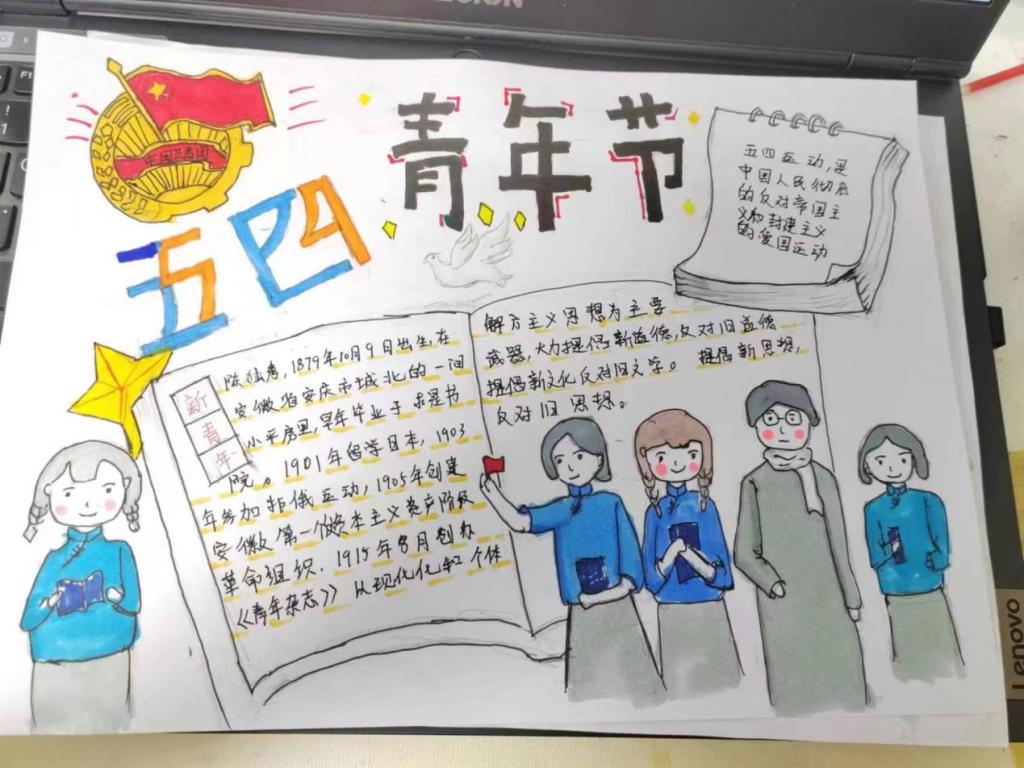 中国共青团
五四
青年节
五四运动,是
中国人民彻底
的反对帝国主
义和封建主义
的爱国运动
新
青
年
陈独秀,1879年10月9日出生,在
安徽省安庆市城北的一间
小平房里,早年毕业于求是书
院。1901年留学日本,1903
年参加拒俄运动,1905年创建
安徽第一个资本主义产阶级
革命组织.1915年8月创办
《青年杂志》从现代化和个体
解方主义思想为主要
武器,大力提倡新道德,反对旧道德
提倡新文化反对旧文学。提倡新思想,
反对旧思想。
F1
Lenovo